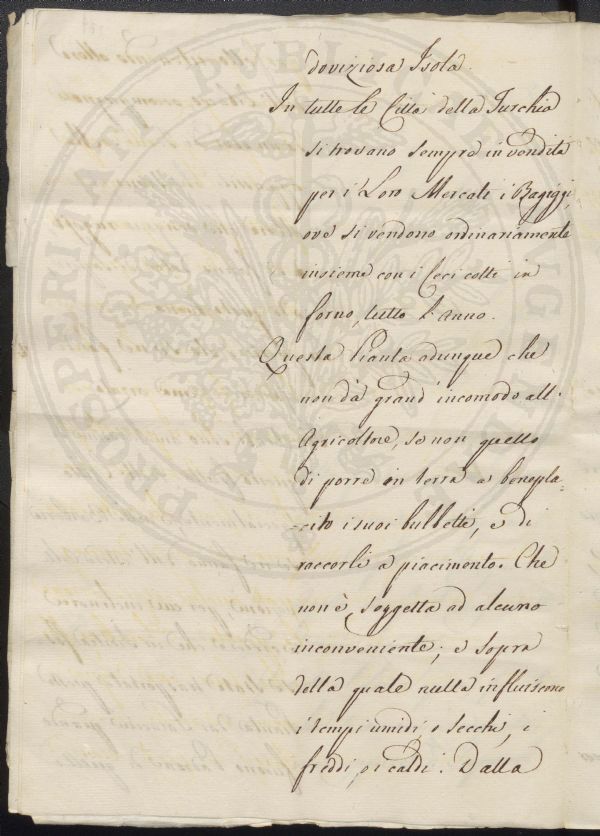 doviziosa Isola.
In tutte le Città della Turchia
si trovano sempre in vendita
per i Loro Mercati i Bagiggi,
ove si vendono ordinariamente
insieme con i Ceci cotti in
forno, tutto l'anno.
Questa Pianta adunque che
non dà grand' incomodo all'
Agricoltore, se non quello
di porre in terra a benepla-
-cito i suoi bulbetti, e di
raccorli a piacimento. Che
non è soggetta ad alcuno
inconveniente; e sopra
della quale nulla influiscono
i tempi umidi, o secchi, i
freddi, o i caldi. Dalla